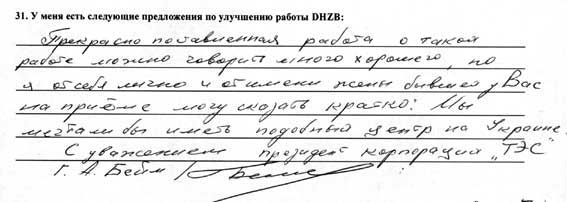 31. У меня есть следующие предложения по улучшению работы DHZB:
Прекрасно поставленная работа о такой
работе можно говорить много хорошего, но
я от себя лично и от имени жены бывшей у Вас
на приёме могу сказать кратко: Мы
мечтали бы иметь подобный центр на Украине.
С уважением президент корпорации „ТЭС"
Г. А. Бейм